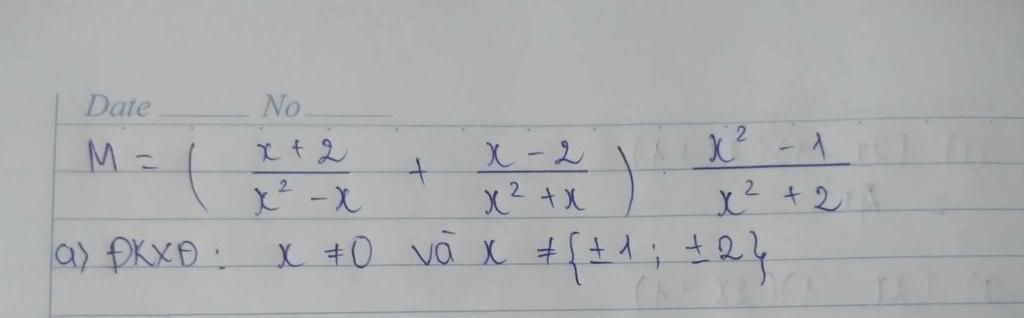 Date No
M = ( \frac{x+2}{x^2-x} + \frac{x-2}{x^2+x} ) . \frac{x^2-1}{x^2+2}
a) ĐKXĐ: x ≠ 0 và x ≠ {±1; ±2}